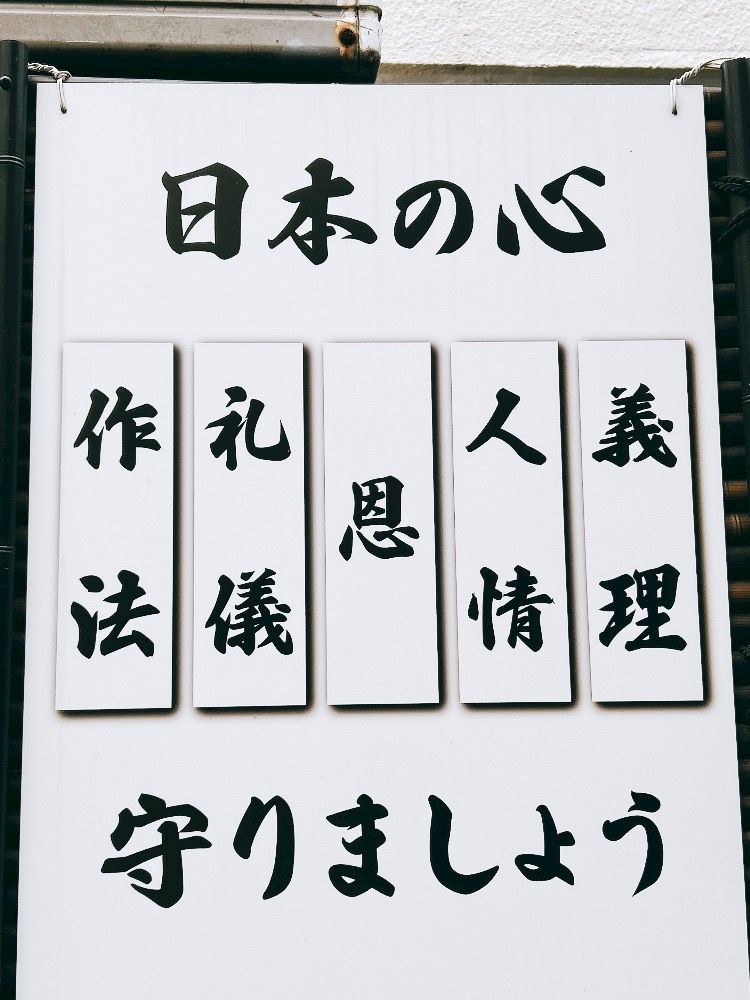 日本の心
義理
人情
恩
礼儀
作法
守りましょう